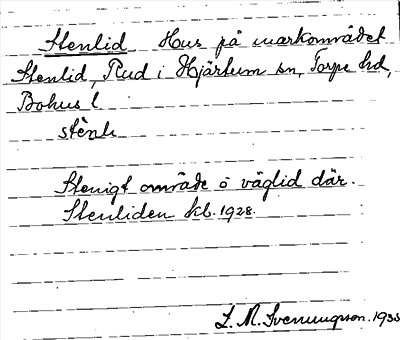 Stenlid Hus på markområdet
Stenlid, Rud i Hjärtum sn, Torpe hd,
Bohus l.
Stenigt område o väglid där.
Stenliden kb. 1928.
J. M. Svenungson. 1933